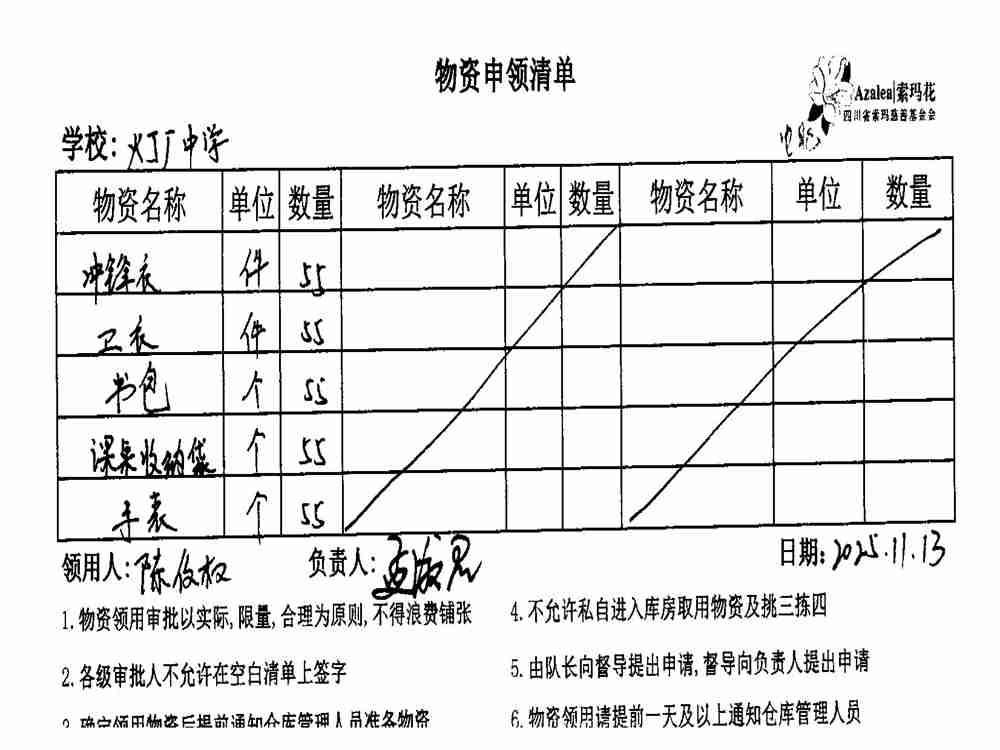 物资申领清单
Azalea|索玛花
四川省索玛慈善基金会
学校: 中学
物资名称 单位 数量 物资名称 单位 数量 物资名称 单位 数量
冲锋衣 件 55
卫衣 件 55
书包 个 55
课桌收纳袋 个 55
手表 个 55
领用人:陈俊权 负责人: 日期:2025.11.13
1.物资领用审批以实际,限量,合理为原则,不得浪费铺张
2.各级审批人不允许在空白清单上签字
3.确定领用物资后提前通知仓库管理人员准备物资
4.不允许私自进入库房取用物资及挑三拣四
5.由队长向督导提出申请,督导向负责人提出申请
6.物资领用请提前一天及以上通知仓库管理人员